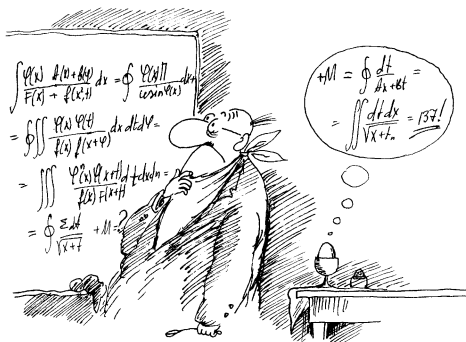 ∫ φ(x) f(x)+f(y) / F(x) + f(x,t) dx = ∮ φ(x)Π / cosin φ(x) dx+
= ∮∬ φ(x) φ(t) / f(x) f(x+φ) dx dt dφ =
= ∭ φ²(x) φ(x+t) / f(x) F(x+t) dt dx dn =
= ∮ Σ dt / √x+t + M = ?
+M = ∮ dt / Ax+Bt =
= ∬ dt dx / √x+tn = 137!